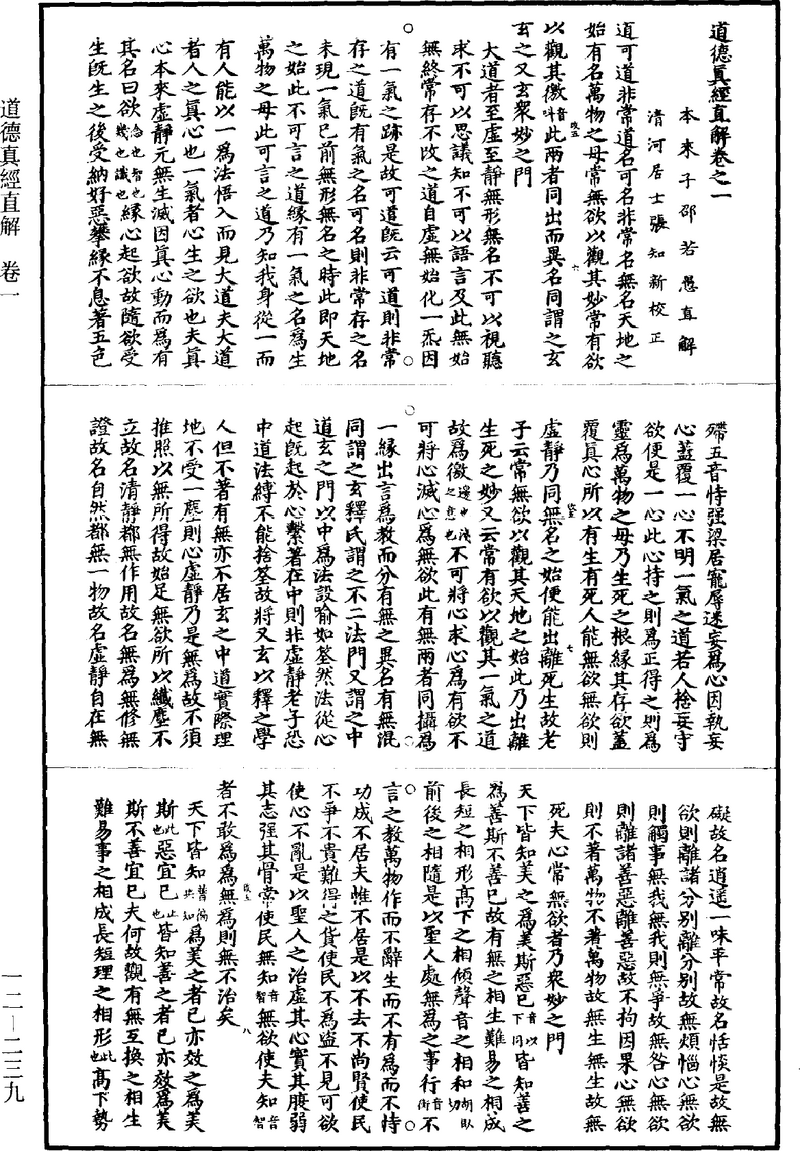 道德真經直解卷之一
本來子邵若愚直解
清河居士張知新校正
道可道非常道名可名非常名無名天地之
始有名萬物之母常無欲以觀其妙常有欲
以觀其徼音叫此兩者同出而異名同謂之玄
玄之又玄衆妙之門
大道者至虛至靜無形無名不可以視聽
求不可以思議知不可以語言及此無始
無終常存不改之道自虛無始化一炁因
有一氣之跡是故可道旣云可道則非常
存之道旣有氣之名可名則非常存之名
未現一氣已前無形無名之時此即天地
之始此不可言之道緣有一氣之名爲生
萬物之母此可言之道乃知我身從一而
有人能以一爲法悟入而見大道夫大道
者人之真心也一氣者心生之欲也夫真
心本來虛靜元無生滅因真心動而爲有
其名曰欲念也智也幾也識也緣心起欲故隨欲受
生旣生之後受納好惡攀緣不息著五色
殢五音恃强梁居寵辱迷妄爲心因執妄
心蓋覆一心不明一氣之道若人捨妄守
欲便是一心此心持之則爲正得之則爲
靈爲萬物之母乃生死之根緣其存欲蓋
覆真心所以有生有死人能無欲無欲則
虛靜乃同無名之始便能出離死生故老
子云常無欲以觀其天地之始此乃出離
生死之妙又云常有欲以觀其一氣之道
故爲徼邊也淺之意也不可將心求心爲有欲不
可將心滅心爲無欲此有無兩者同攝爲
一緣出言爲教而分有無之異名有無混
同謂之玄釋氏謂之不二法門又謂之中
道玄之門以中爲法設喻如筌然法從心
起旣起於心繫著在中則非虛靜老子恐
中道法縛不能捨筌故將又玄以釋之學
人但不著有無亦不居玄之中道實際理
地不受一塵則心虛靜乃是無爲故不須
推照以無所得故始足無欲所以纖塵不
立故名清靜都無作用故名無爲無修無
證故名自然都無一物故名虛靜自在無
礙故名逍遥一味平常故名恬惔是故無
欲則離諸分别離分别故無煩惱心無欲
則觸事無我無我則無爭故無咎心無欲
則離諸善惡離善惡故不拘因果心無欲
則不著萬物不著萬物故無生無生故無
死夫心常無欲者乃衆妙之門
天下皆知美之爲美斯惡已音以下同皆知善之
爲善斯不善已故有無之相生難易之相成
長短之相形高下之相傾聲音之相和胡臥切
前後之相隨是以聖人處無爲之事行音衙不
言之教萬物作而不辭生而不有爲而不恃
功成不居夫惟不居是以不去不尚賢使民
不爭不貴難得之貨使民不爲盜不見可欲
使心不亂是以聖人之治虛其心實其腹弱
其志强其骨常使民無知音智無欲使夫知音智
者不敢爲爲無爲則無不治矣
天下皆知普徧共知爲美之者已亦效之爲美
斯此也惡宜已止也皆知善之者已亦效爲美
斯不善宜已夫何故觀有無互換之相生
難易事之相成長短理之相形此也高下勢
道德真經直解 卷一
一二—二三九